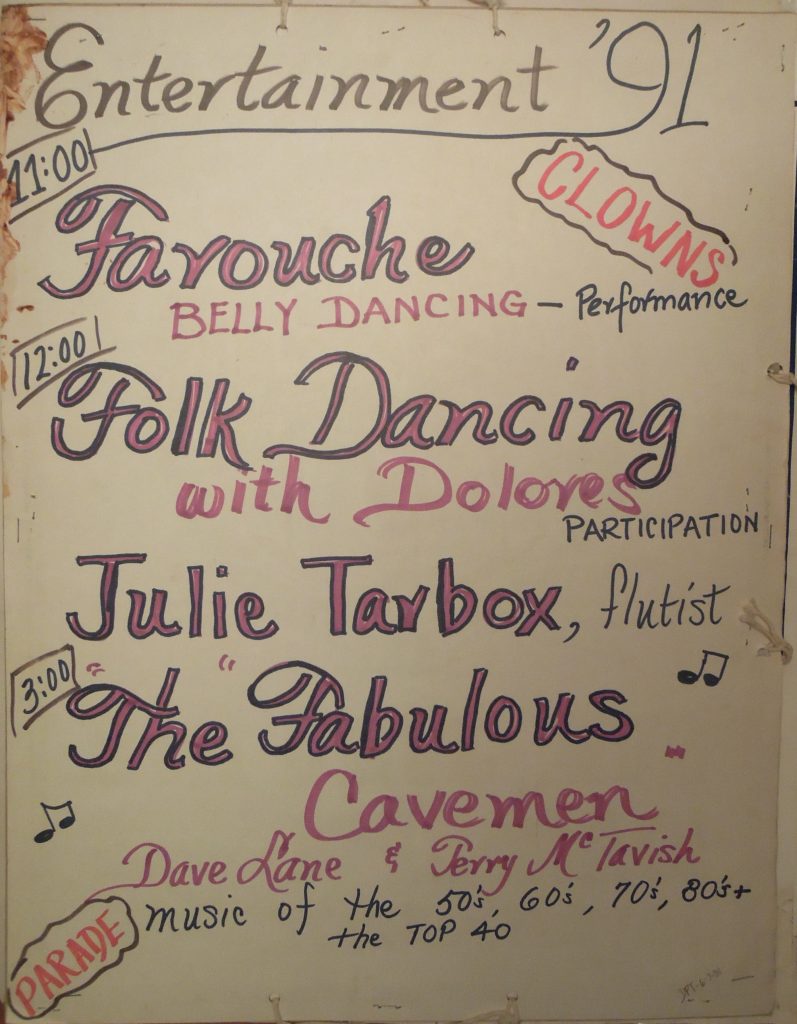 Entertainment '91
11:00
CLOWNS
Farouche
BELLY DANCING — Performance
12:00
Folk Dancing
with Dolores
PARTICIPATION
Julie Tarbox, flutist
3:00
"The "Fabulous
Cavemen"
Dave Lane & Terry McTavish
music of the 50's, 60's, 70's, 80's +
the TOP 40
PARADE